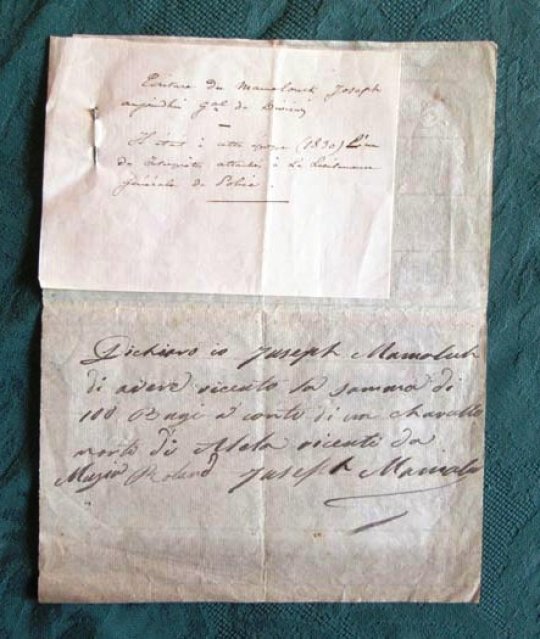 Ecriture du Mamelouck Joseph
aujourdhui Gal de Division
Il était à cette époque (1830) l'un
des Interprètes attachés à la Lieutenance
générale de Police.
Dichiaro io Juseph Mamoluk
di avere riceuto la somma di
100 Bugi a conti di un chavallo
morto di riceuti da
Muziu Roland Juseph Mamolu